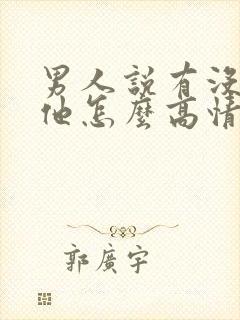 男人說有沒
他怎麼高情
郭廣宇